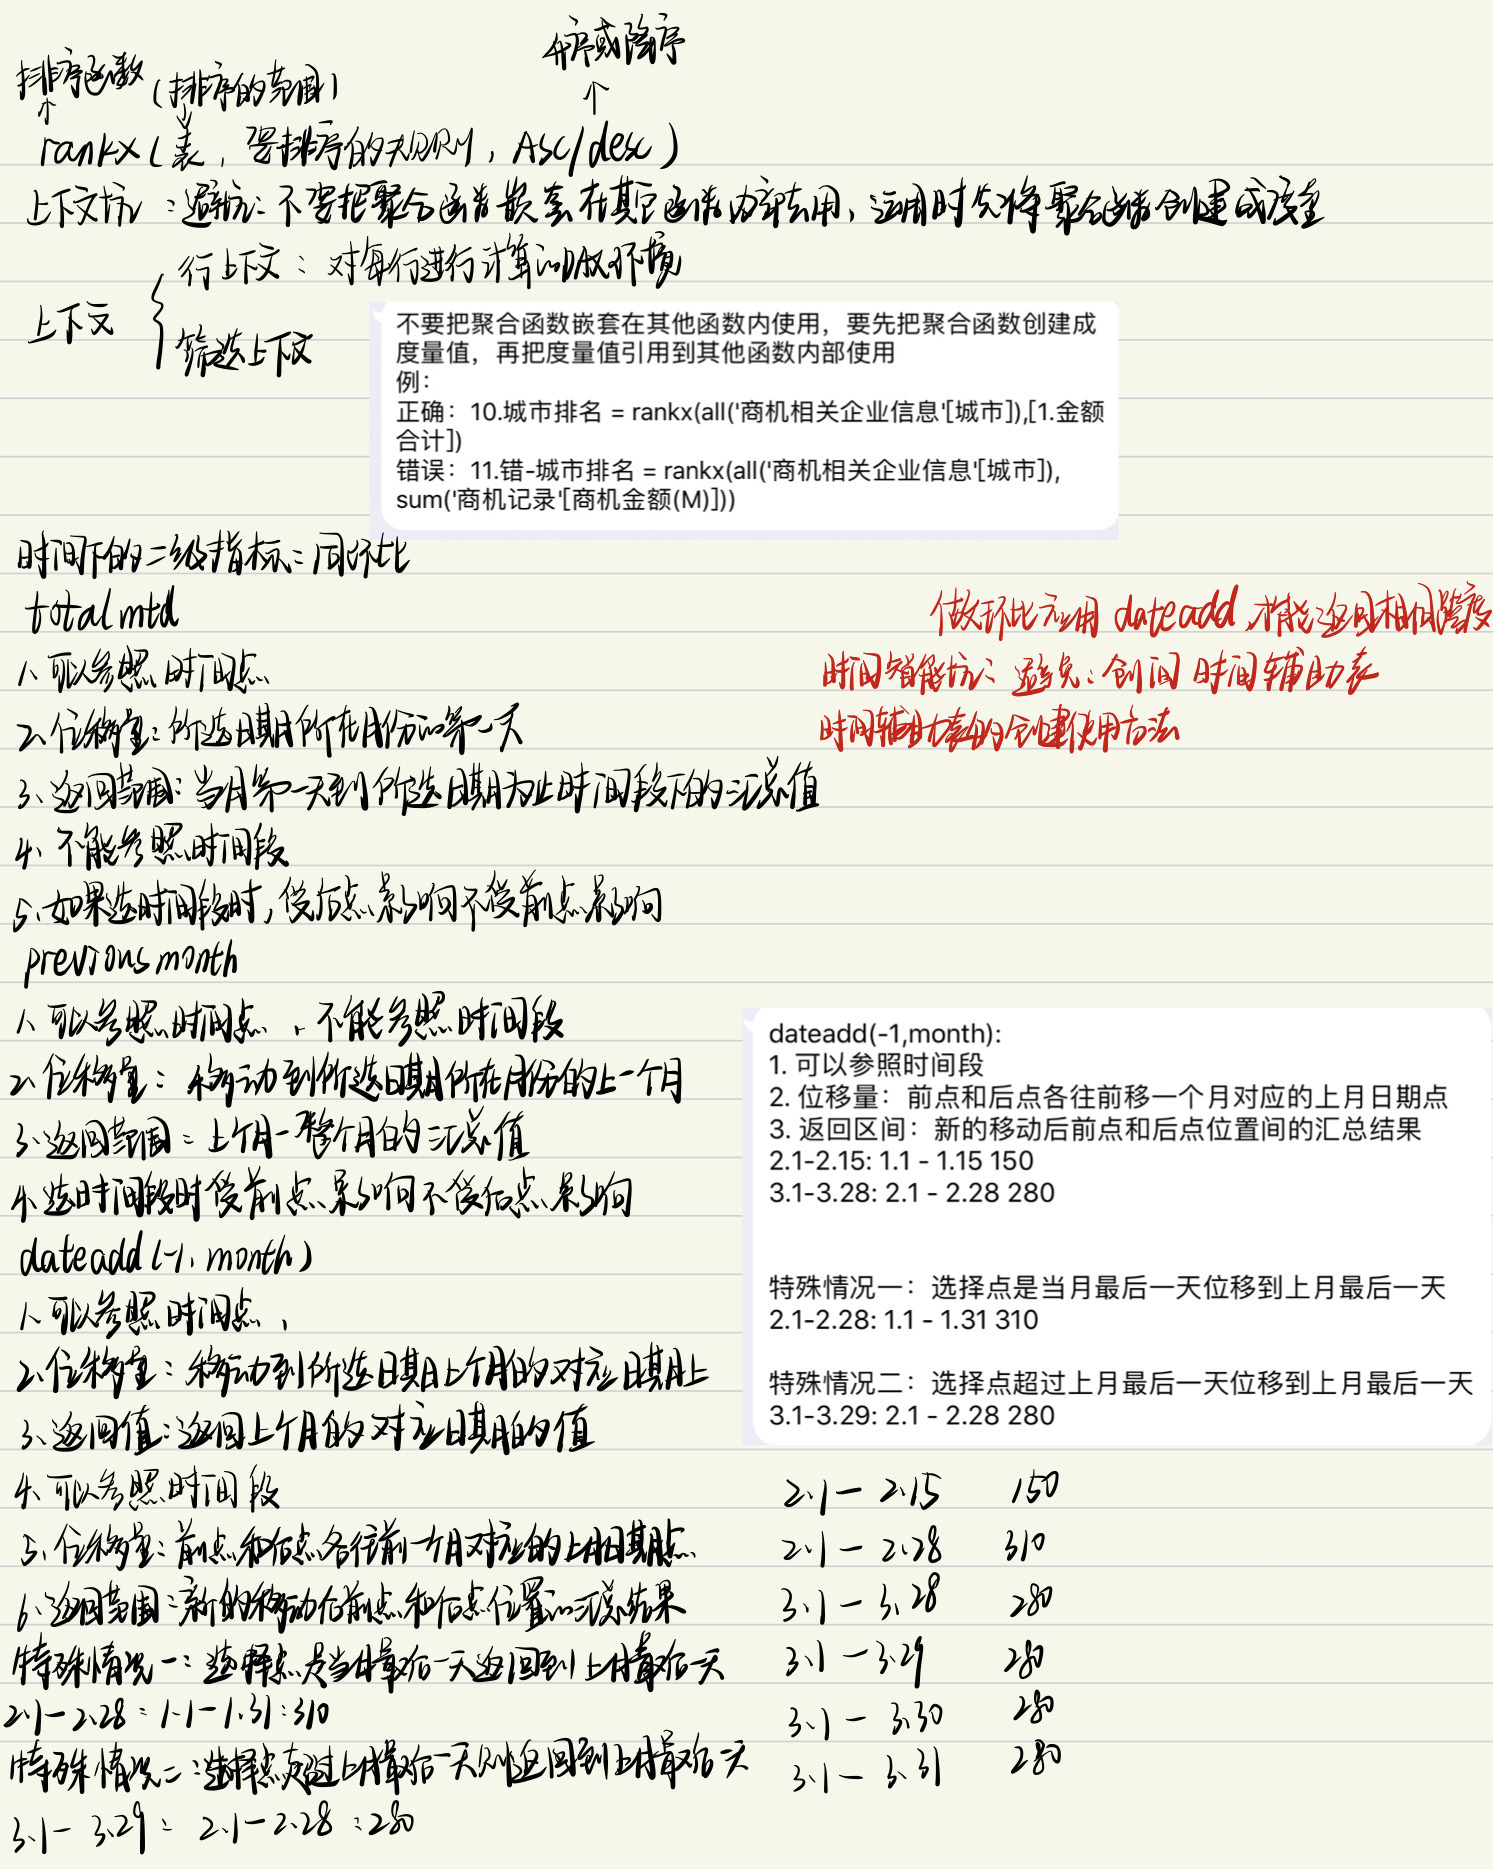 升序或降序
排序函数 (排序的范围)
rankx(表, 要排序的, Asc/desc)
上下文坑:避坑:不要把聚合函数嵌套在其它函数内部去用,运用时先将聚合函数创建成度量
行上下文:对每行进行计算的DAX环境
上下文
筛选上下文
不要把聚合函数嵌套在其他函数内使用,要先把聚合函数创建成
度量值,再把度量值引用到其他函数内部使用
例:
正确:10.城市排名 = rankx(all('商机相关企业信息'[城市]),[1.金额
合计])
错误:11.错-城市排名 = rankx(all('商机相关企业信息'[城市]),
sum('商机记录'[商机金额(M)]))
时间下的二级指标:同环比
totalmtd
做环比应用 dateadd,才能返回相同跨度
1、可以参照时间点
时间智能坑:避免:创间 时间辅助表
2、位移量:所选日期所在月份的第一天
时间辅助表的创建使用方法
3、返回范围:当月第一天到所选日期为止时间段下的汇总值
4、不能参照时间段
5、如果选时间段时,受后点影响不受前点影响
previousmonth
1、可以参照时间点、不能参照时间段
2、位移量:移动到所选日期所在月份的上一个月
3、返回范围:上个月一整个月的汇总值
4、选时间段时受前点影响不受后点影响
dateadd(-1,month)
1、可以参照时间点,
2、位移量:移动到所选日期上个月的对应日期上
3、返回值:返回上个月的对应日期的值
4、可以参照时间段
5、位移量:前点和后点各往前一个月对应的上月日期点
6、返回范围:新的移动后前点和后点位置的汇总结果
特殊情况一:选择点是当月最后一天返回到上月最后一天
2.1-2.28:1.1-1.31:310
特殊情况二:选择点超过上月最后一天则返回到上月最后一天
3.1-3.29:2.1-2.28:280
dateadd(-1,month):
1. 可以参照时间段
2. 位移量:前点和后点各往前移一个月对应的上月日期点
3. 返回区间:新的移动后前点和后点位置间的汇总结果
2.1-2.15: 1.1 - 1.15 150
3.1-3.28: 2.1 - 2.28 280
特殊情况一:选择点是当月最后一天位移到上月最后一天
2.1-2.28: 1.1 - 1.31 310
特殊情况二:选择点超过上月最后一天位移到上月最后一天
3.1-3.29: 2.1 - 2.28 280
2.1-2.15 150
2.1-2.28 310
3.1-3.28 280
3.1-3.29 280
3.1-3.30 280
3.1-3.31 280